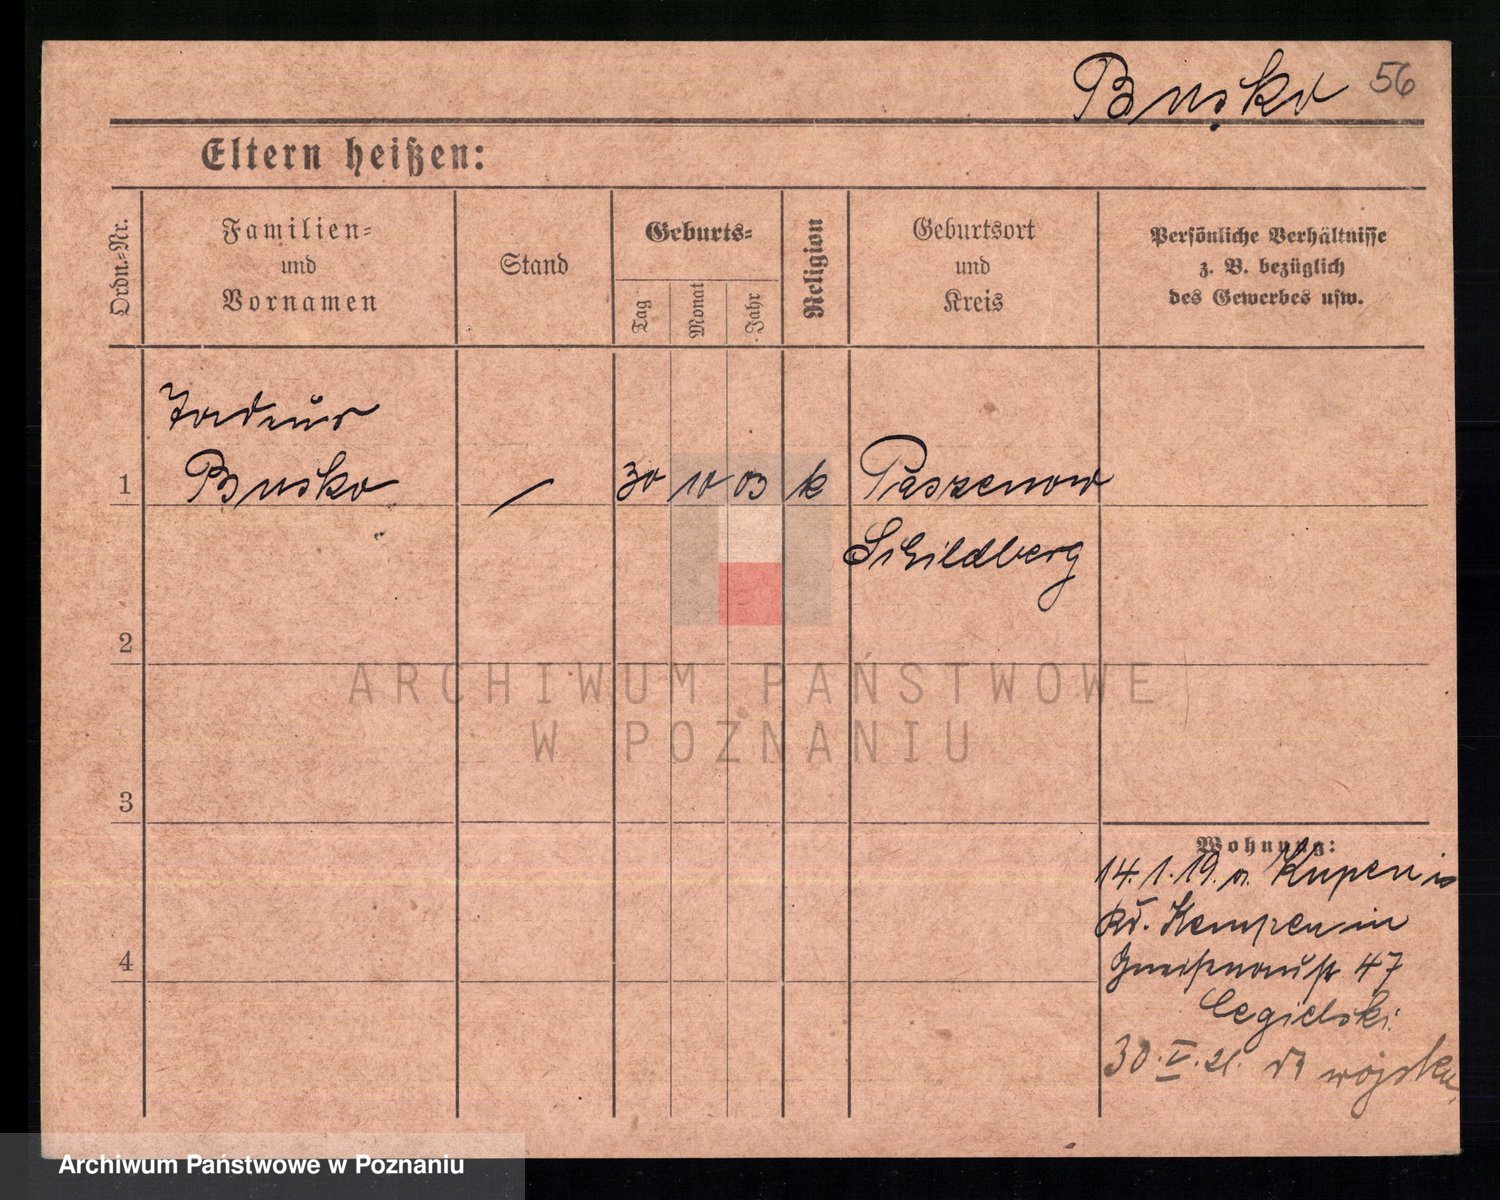 Busko 56
Eltern heißen:
Ordn.-Nr.
Familien-
und
Vornamen
Stand
Geburts-
Tag
Monat
Jahr
Religion
Geburtsort
und
Kreis
Persönliche Verhältnisse
z. B. bezüglich
des Gewerbes usw.
Tadeus
1 Busko — 30 10 03 k Paszenow
Schildberg
2
3
4
Wohnung:
14.1.19. a. in
Kr. Kempen in
Gneisenaustr 47
Cegielski
30.V.21. do wojska
ARCHIWUM PAŃSTWOWE
W POZNANIU
Archiwum Państwowe w Poznaniu